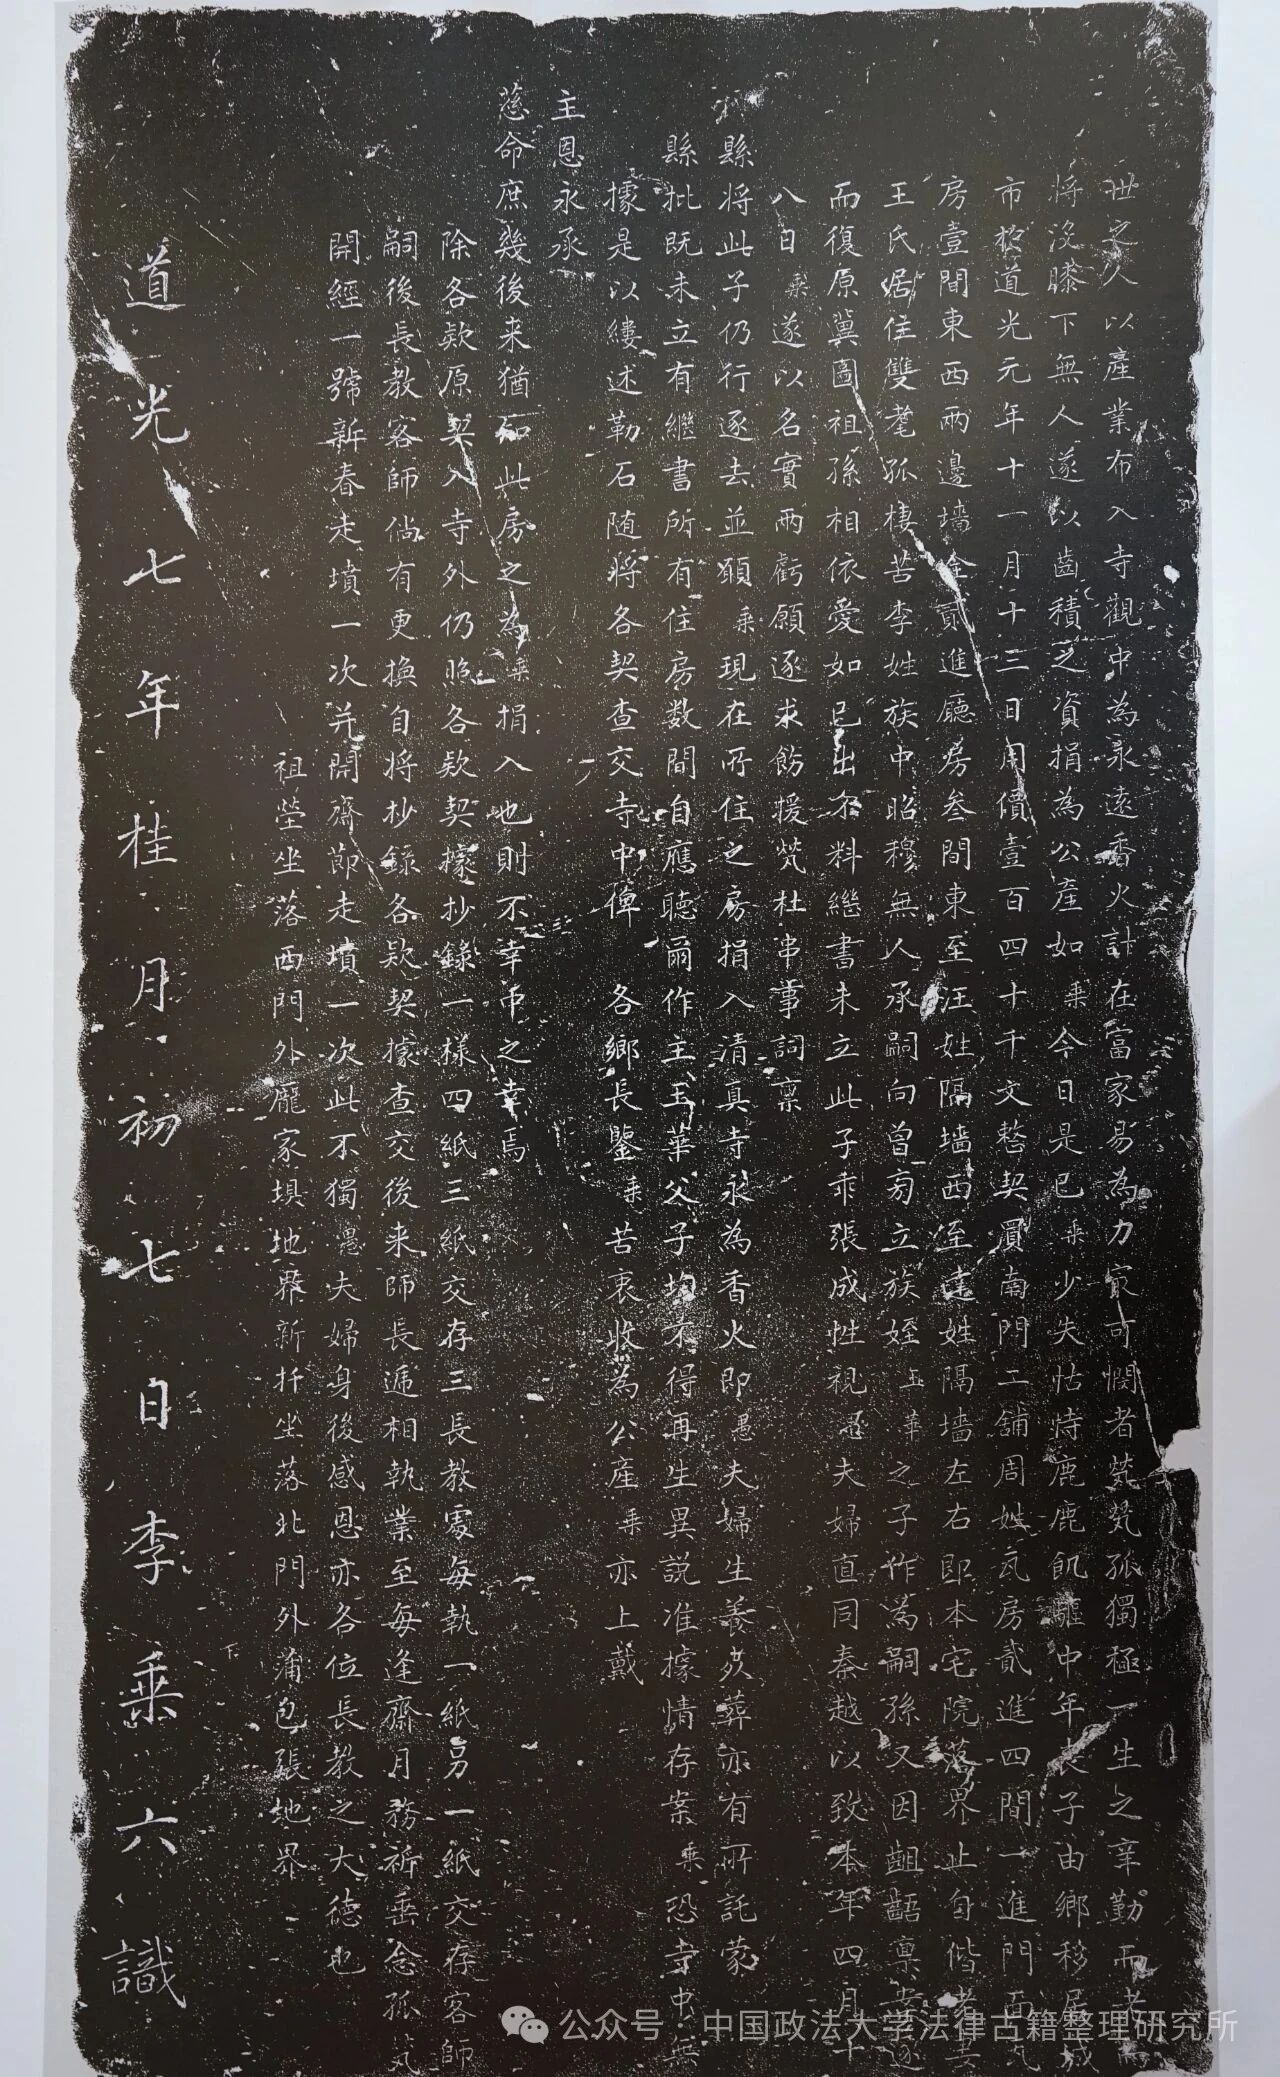 世之人以產業布入寺觀中為永遠香火計在富家易為力最可憫者煢煢孤獨極一生之辛勤而老
將沒膝下無人遂以齒積之資捐為公產如乘今日是已乘少失怙恃鹿鹿飢驅中年喪子由鄉移居城
市於道光元年十一月十三日用價壹百四十千文整契買南門二舖周姓瓦房貳進四間一進門面瓦
房壹間東西兩邊墻全貳進廳房叁間東至汪姓隔墻西至達姓隔墻左右即本宅院落界止自偕老妻
王氏居住雙耄孤棲苦李姓族中昭穆無人承嗣向曾旁立族姪玉華之子作為嗣孫又因齟齬稟券逐
而復原冀圖祖孫相依愛如己出不料繼書未立此子乖張成性視愚夫婦直同秦越以致本年四月十
八日乘遂以名實兩虧願逐求飭援梵杜串事詞稟
縣將此子仍行逐去並願乘現在所住之房捐入清真寺永為香火即愚夫婦生養死葬亦有所託蒙
縣批既未立有繼書所有住房数間自應聽爾作主玉華父子均不得再生異説准據情存案乘恐寺中無
據是以縷述勒石随將各契查交寺中俾各鄉長鑒乘苦衷收為公產乘亦上戴
主恩永承
慈命庶幾後来猶知此房之為乘捐入也則不幸中之幸焉
除各欵原契入寺外仍照各欵契據抄錄一樣四紙三紙交存三長教處每執一紙另一紙交存客師
嗣後長教客師倘有更換自將抄錄各欵契據查交後来師長遞相執業至每逢齋月務祈垂念孤煢
開經一號新春走墳一次并開齋節走墳一次此不獨愚夫婦身後感恩亦各位長教之大德也
祖塋坐落西門外龐家埧地界新扦坐落北門外蒲包張地界
道光七年桂月初七日李乘六識
公众号·中国政法大学法律古籍整理研究所